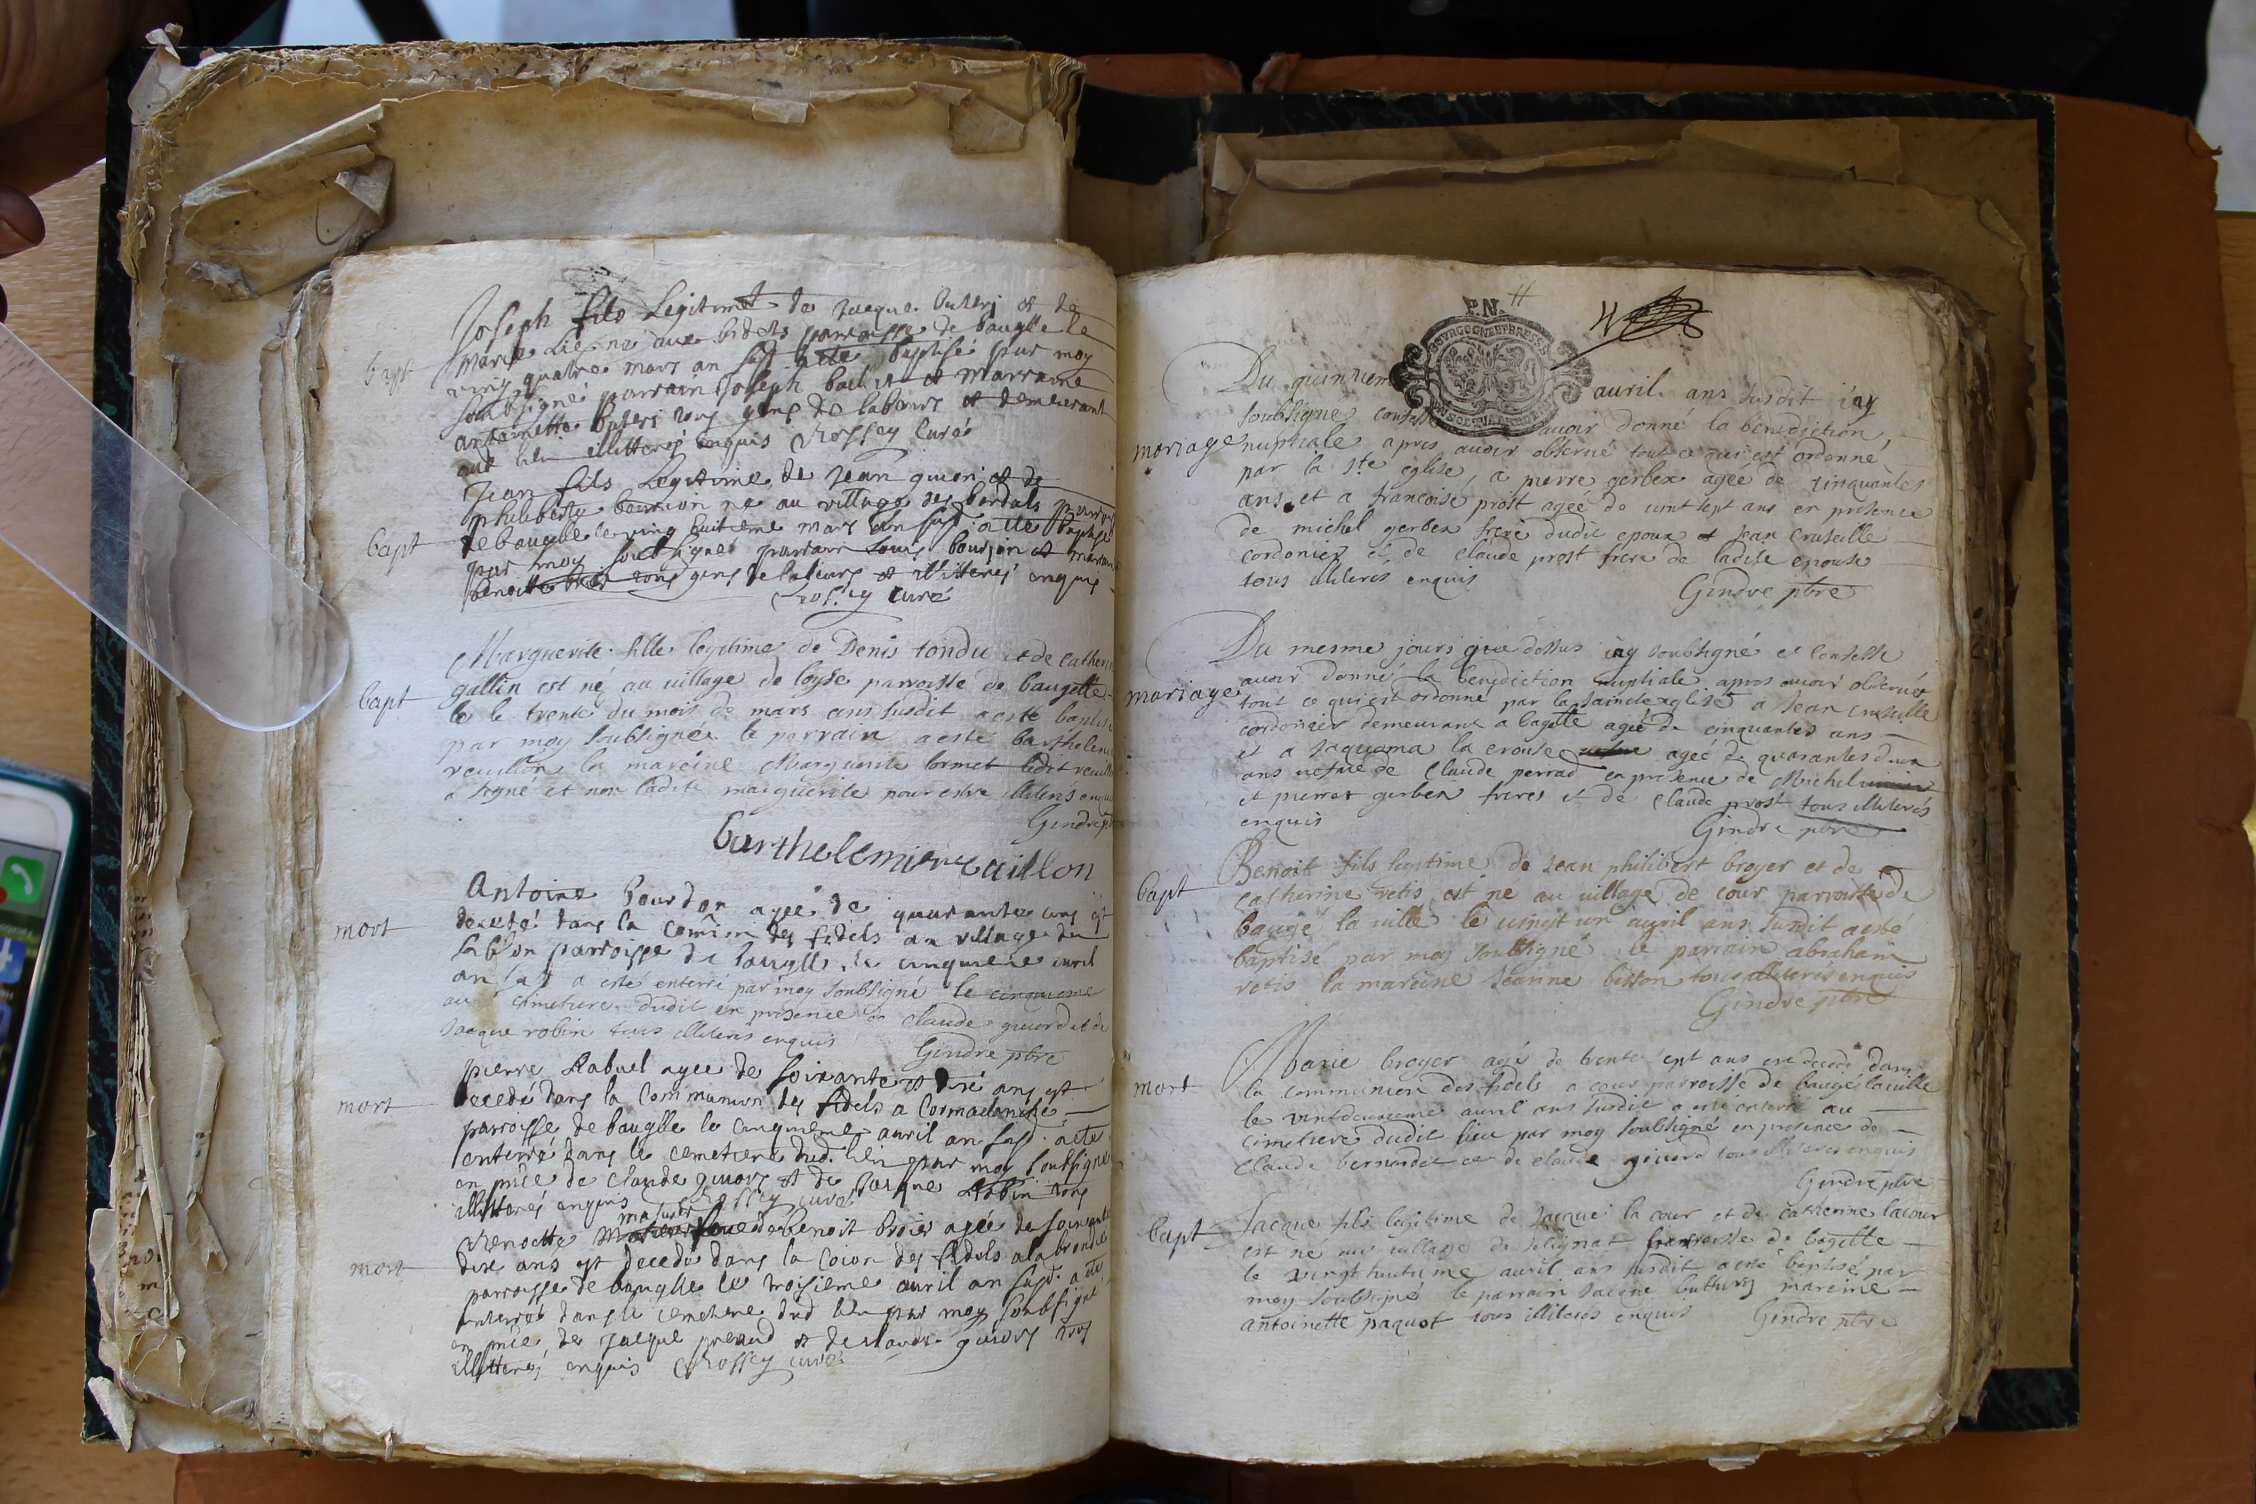 Joseph fils Legitime de Jacque buteri et de
Marie né aux bidets parroisse de bauglle le
bapt
ving quatre mars an susd a ete baptisé par moy
soubsigné parrain Joseph et marraine
antoinette buteri tous gens de labeurs et demeurant
aud lieu illitterés enquis Rossey Curé
Jean fils Legitime de Jean guion et de
philiberte bourion né au village des bordats parrois
bapt
de bauglle le ving huitieme mars an susd a ete baptisé
par moy soubsigné parrain Louis bourion et marraine
benoitte tous gens de labeurs et illitterés enquis
Rossey curé
Marguerite fille legitime de Denis tondu et de catherine
gallin est né au village de loyse parroisse de baugette
bapt
le le trente du mois de mars ans susdit a esté baptisé
par moy soubsigné le parrain a esté barthelemi
la mareine Marguerite cormet ledit
a signé et non ladite marguerite pour estre illiteres enquis
Gindre
barthelemi reuaillon
Antoine bourdon agée de quarante cinq
mort
decedé dans la comûon des fidels au village du
sablon parroisse de bauglle le cinquieme avril
an susd a esté enterré par moy soubsigné le cinquieme
au cimetiere dudit en presence de claude guiord et de
Jacque robin tous illiterés enquis
Gindre pbre
pierre Rabuel agee de soixante et dixe ans est
mort
decedé dans la Communion des fidels a Cormaranche
parroisse de bauglle le cinquieme auril an susd. a ete
enterré dans le cemetiere dud. lieu par moy soubsigne
en pnce de claude guiord et de Jacque Robin tous
illitterés enquis Rossey curé
Benoitte veuve de benoit broier agée de soixante
mort
dixe ans est decedé dans la Coion des fidels a la bronde
parroisse de bauglle le troisieme auril an susd. a ete
enterré dans le cemetiere dud lieu par moy soubsigné
en pnce de Jacque preaud et de claude guiord tous
illitterés enquis Rossey curé
P.N. 11
BOURGOGNE ET BRESSE
Du quinziem auril ans susdit i'ay
soubsigne confesse avoir donné la bénédiction
mariage
nuptiale apres auoir obserué tout ce qui est ordonné
par la ste eglise, a pierre gerbex agée de cinquantes
ans et a francoise prost agée de uint sept ans en présence
de michel gerbex frere dudit epoux et Jean cruseille
cordonier et de claude prost frere de ladite epouse
tous illiterés enquis
Gindre pbre
Du mesme jours que dessus i'ay soubsigné et confesse
avoir donné la benediction nuptiale apres auoir obserué
mariage
tout ce qui est ordonné par la saincte eglise a Jean cruseille
cordonier demeurant a bagette agée de cinquantes ans
et a Jaquema la crouse agée de quarantes deux
ans uefue de Claude perrad en présence de Michel
et pierre gerbex freres et de claude prost tous illiterés
enquis
Gindre pbre
Benoit fils legitime de Jean philibert broyer et de
bapt
catherine retis est né au village de cour parroisse de
baugé la ville le uingt un auril ans susdit a esté
baptisé par moy soubsigné le parrain abraham
retis la mareine Jeanne bisson tous illiteres enquis
Gindre pbre
Marie broyer agé de trente sept ans est decedé dans
mort
la communion des fidels a cour parroisse de baugé la uille
le uint deuxieme auril ans susdit a esté enterré au
cimetiere dudit lieu par moy soubsigné en présence de
claude bernardet et de claude guiord tous illiteres enquis
Gindre pbre
Jacque fils legitime de Jacque la cour et de catherine lacour
bapt
est né au uillage de parroisse de bagette
le uingt huitieme auril ans susdit a esté baptisé par
moy soubsigné le parrain Jacque mareine
antoinette paquot tous illiterés enquis Gindre pbre